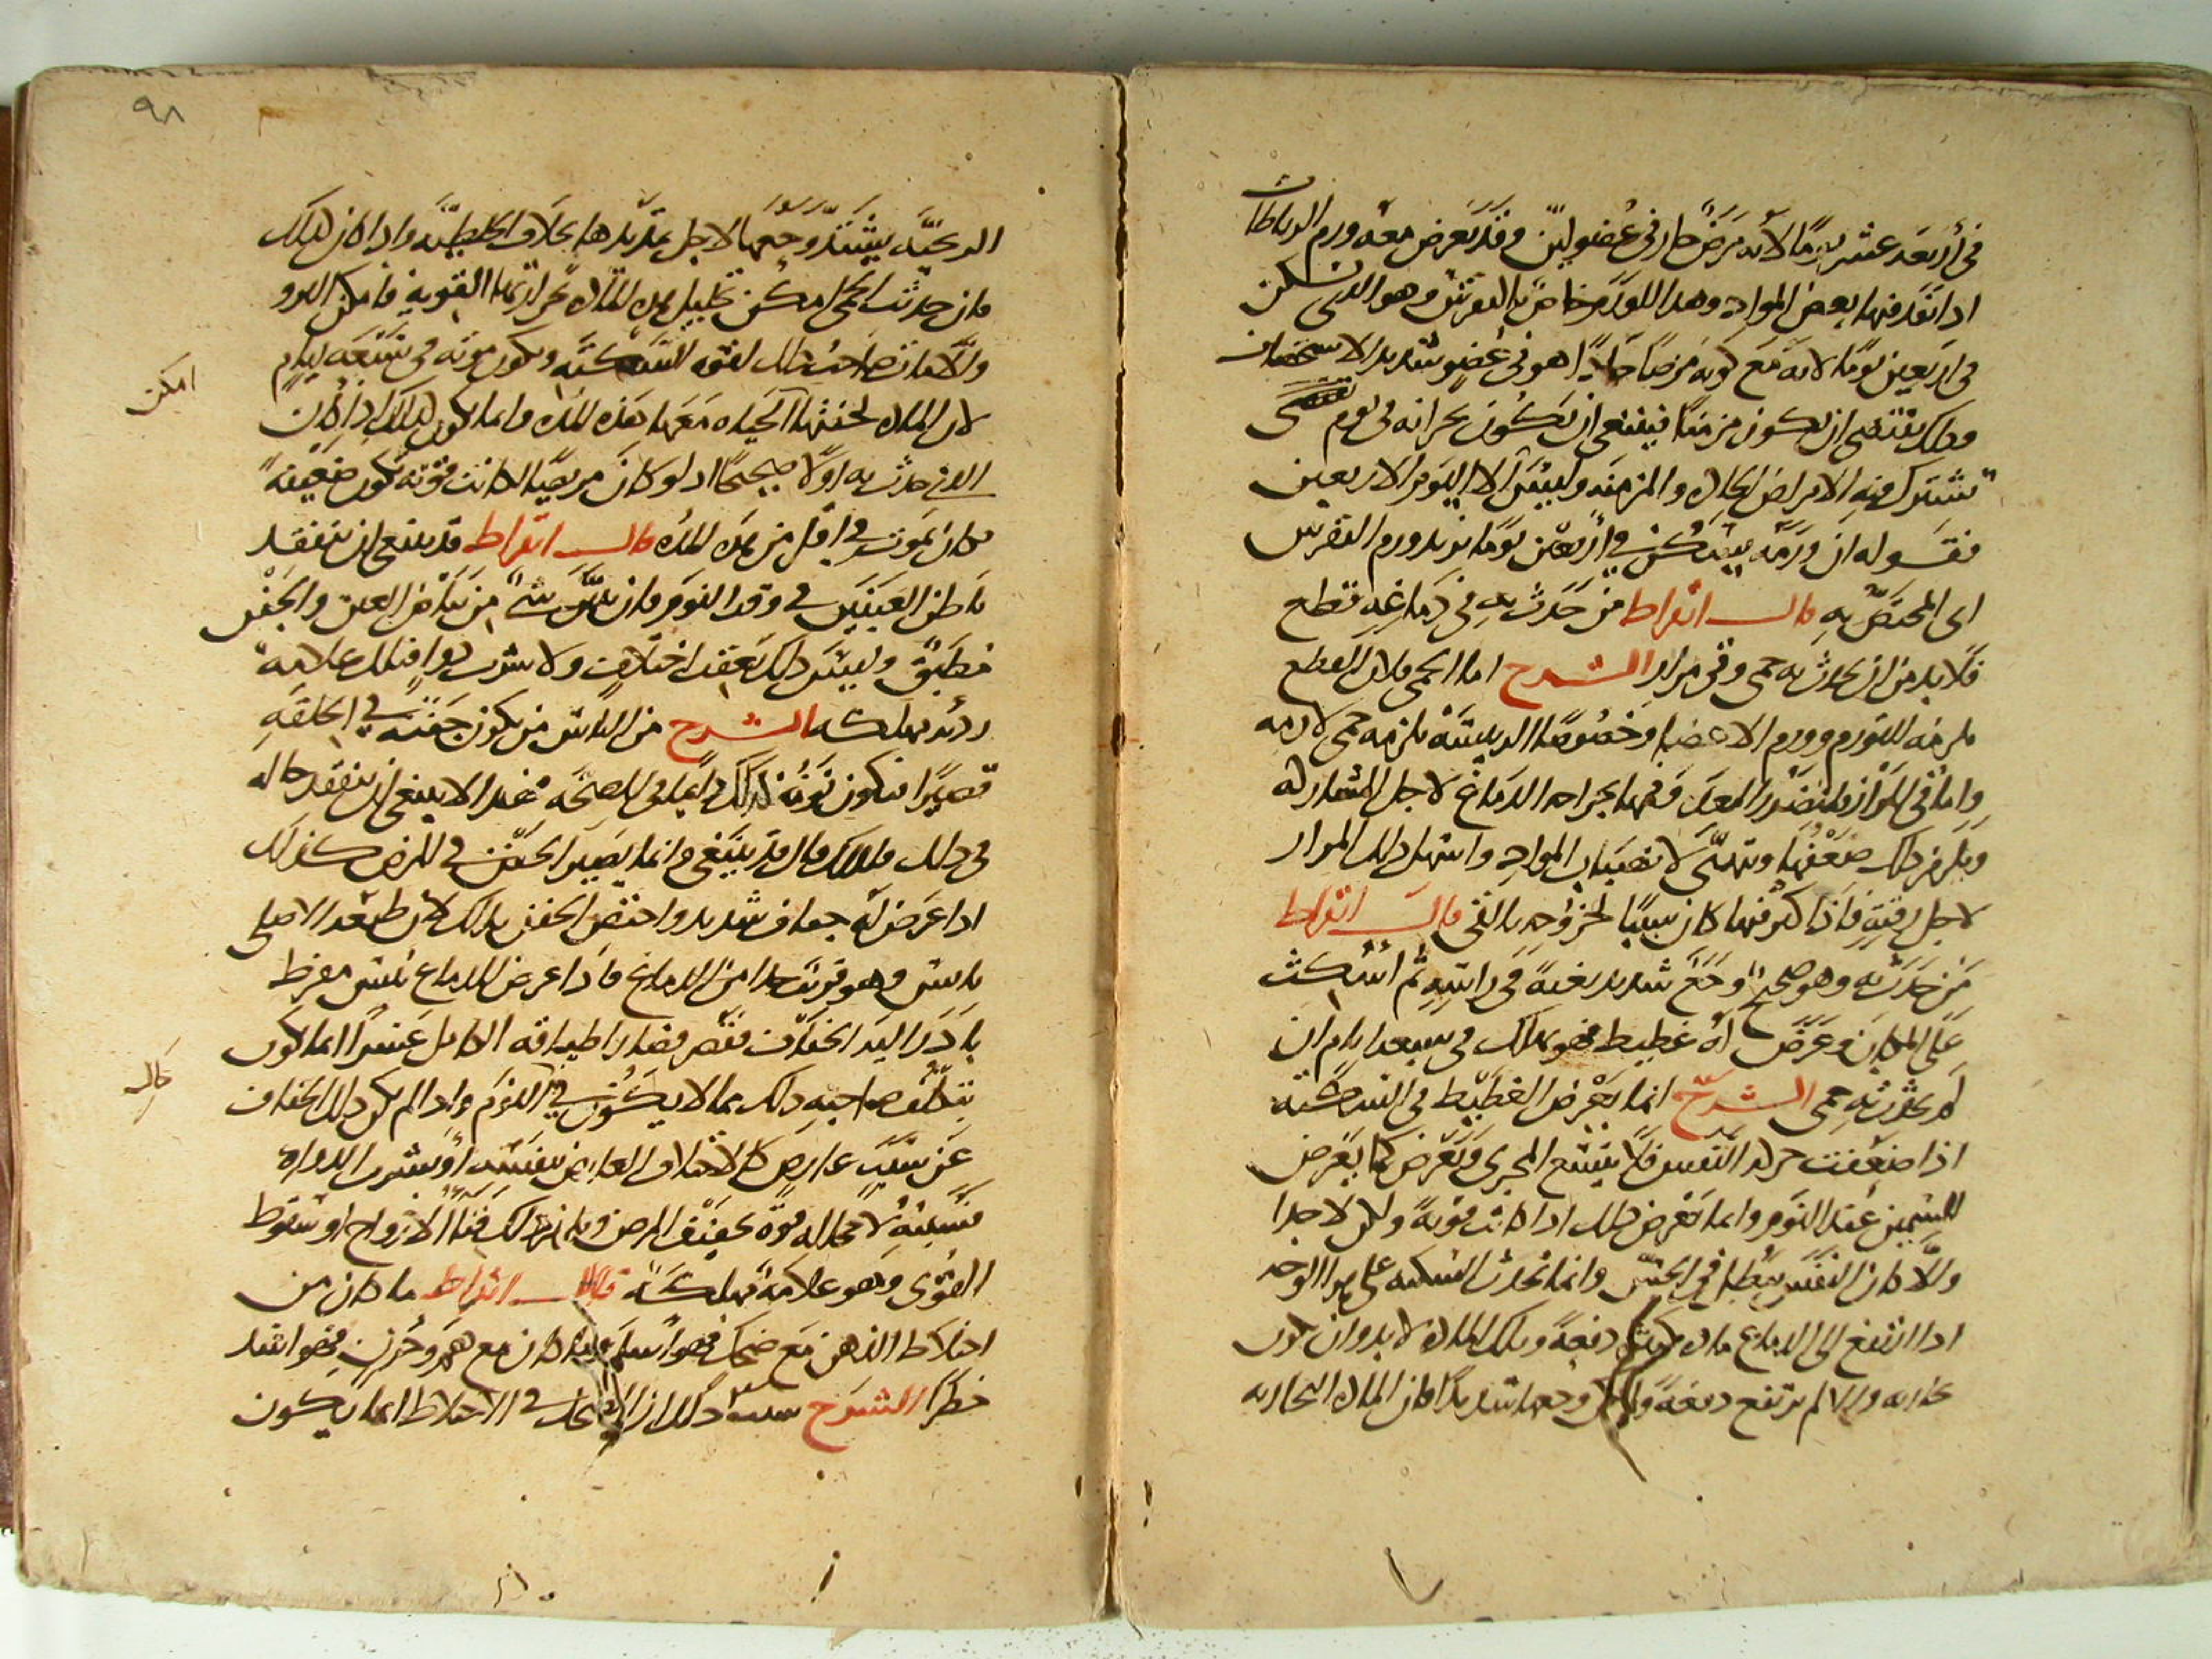 في أربعة عشر يوما لانه مرض حار في عضو لين وقد يعرض معه ورم الرباطات
اذا نفذ فيها بعض المواد وهذا الورم خاص بالنقرس وهو الذي يسكن
في اربعين يوما لانه مع كونه مرضا حادا هو في عضو شديد الاستحصاف
وذلك يقتضي ان يكون مزمنا فينبغي ان يكون بحرانه في يوم
تشترك فيه الامراض الحادة والمزمنة وليس الا اليوم الاربعين
فقوله ان ورمه يسكن في أربعين يوما يريد ورم النقرس
اي المختص به قال ابقراط من حدث به في دماغه قطع
فلا بد من ان يحدث به حمى وقيء مرار الشرح اما الحمى فلان القطع
يلزمه للتورم وورم الاعضا وخصوصا الرييسة يلزمه حمى لازمه
واما قي المرار فلتضرر المعدة وفمها بجراحه الدماغ لاجل المشاركه
ويلزم ذلك ضعفها وتهيئ لانصباب المواد واسهل ذلك المرار
لاجل رقته فاذا كثر فيها كان سببا لخروجه بالقي قال ابقراط
من حدث به وهو صحيح وجع شديد بغتة في راسه ثم اسكت
على المكان وعرض له غطيط فهو يهلك في سبعة ايام ان
لم يحدث به حمى الشرح انما يعرض الغطيط في السكتة
اذا ضعفت حركة النفس فلا يتسع المجرى ويعرض كما يعرض
للسمين عند النوم وانما يعرض ذلك اذا كانت قوية ولكن لا جدا
والا كان النفس يبطل في الحس وانما تحدث السكته على هذا الوجه
اذا اندفع الى الدماغ مادة دفعة وتلك المادة لابد وان تكون
بخاريه والا لم ترتفع دفعة وجعها شديدا فان المادة البخاريه
٩٨
الريحية يشتد وجعها لاجل تمديدها بخلاف الخلطية واذا كان كذلك
فان حدثت الحمى امكن تحليل هذه المادة بحرارتها القوية فامكن البرو
والا مات صاحب ذلك لقوه السكتة ويكون موته في سبعة ايام
امكن
لان المادة لخفتها الحياه معها هذه المدة وانما يكون كذلك اذا كان
الذي حدث به اولا صحيحا اذ لو كان مريضا لكانت قوته تكون ضعيفة
فكان يموت في اقل من هذه المدة قال ابقراط قد ينبغي ان يتفقد
باطن العينين في وقت النوم فان تبين شيء من بياض العين والجفن
مطبق وليس ذلك بعقب اختلاف ولا شرب دوا فتلك علامة
رديه مهلكه الشرح من الناس من يكون جفنه في الخلقة
قصيرا فيكون نومه كذلك دائما في الصحة فهذا لا ينبغي ان يتفقد حاله
في ذلك فلذلك قال قد ينبغي وانما يصير الجفن في المرض كذلك
اذا عرض له جفاف شديد واختص الجفن بذلك لان طبعه الاصلي
يابس وهو قريب جدا من الدماغ فاذا عرض للدماغ يبس مفرط
بادر اليه الجفاف فقصر فصار اطباقه الكامل عسرا انما يكون
بتكلف صاحبه ذلك مما لا يكون في النوم واذا لم يكن ذلك الجفاف
قال
عن سبب عارض كالاختلاف العارض بنفسه او بشرب الدوا
فسببه لا محاله قوة تجفيف المرض ويلزم ذلك فنا الارواح او سقوط
القوى وهو علامة مهلكة قال ابقراط ما كان من
اختلاط الذهن مع ضحك فهو اسلم وما كان مع هم وحزن فهو اشد
خطرا الشرح سبب ذلك ان الضحك في الاختلاط انما يكون